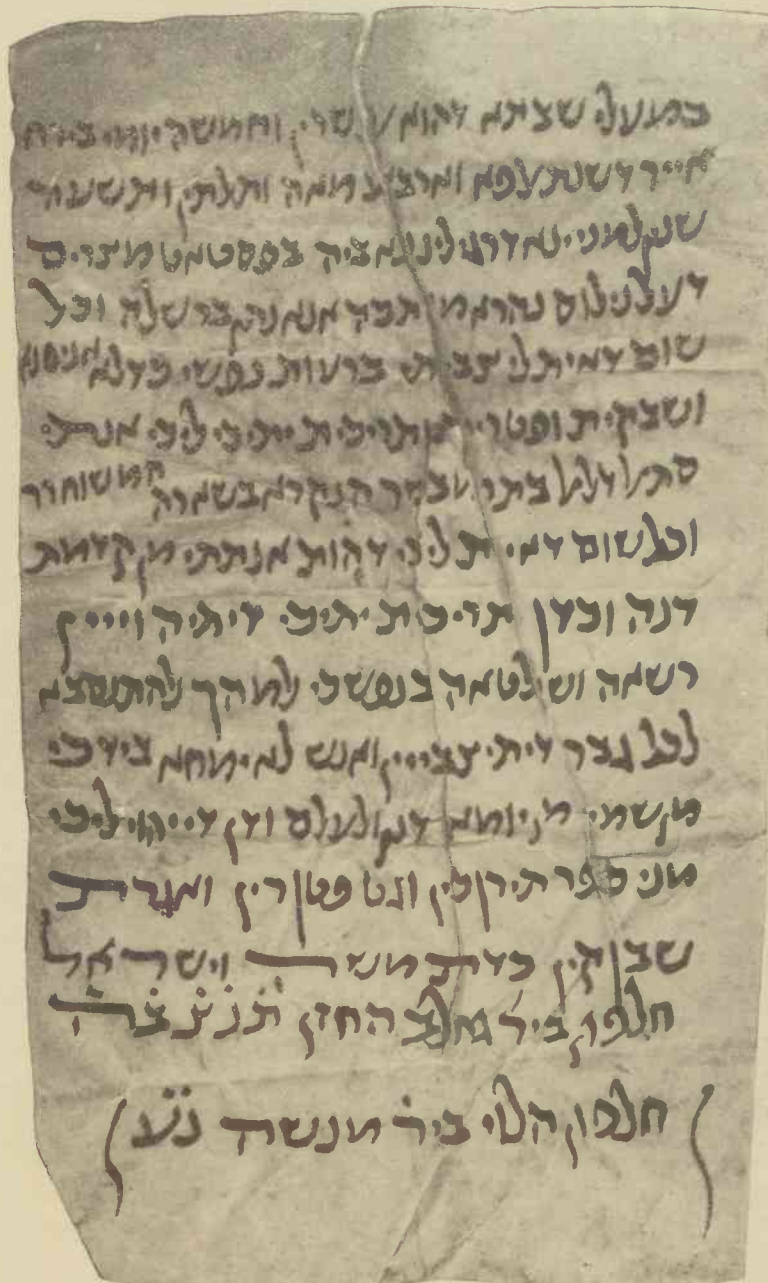 במעלי שבתא דהוא עשרין וחמשה יומי בירח
אייר דשנת אלפא וארבע מאה ותלתין ותשעה
שנין למניינא דרגילי ננא ביה בפסטאט מצרים
דעל נילוס נהרא מותבה אנא בר שלה וכל
שום דאית לי צביתי ברעות נפשי כדלא אניסנא
ושבקית ופטרית ותריכית יתיכי ליכי אנתי
הנקרא בשארה
וכל שום דאית ליכי דהות אנתתי מן קדמת
דנה וכדן תריכית יתיכי דיתיהוייין
רשאה ושלטאה בנפשכי למהך להתנסבא
לכל גבר דיתיצבייין ואנש לא ימחא בידכי
מן שמי מן יומא דנן ולעלם ודן דייהוי ליכי
מני ספר תירוכין וגט פטורין ואגרת
שבוקין כדת משה וישראל
חלפון ביר גאלב החזן תנצבה
חלפון הלוי ביר מנשה נע